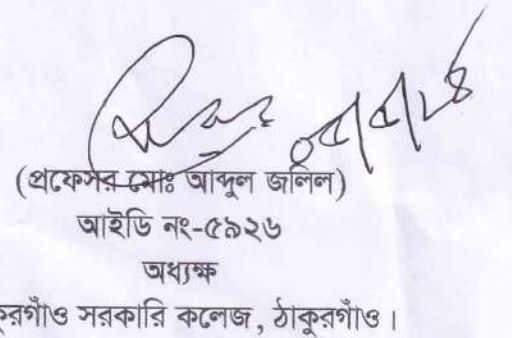 (প্রফেসর মোঃ আব্দুল জলিল)
আইডি নং-৫৯২৬
অধ্যক্ষ
কুরগাঁও সরকারি কলেজ, ঠাকুরগাঁও।